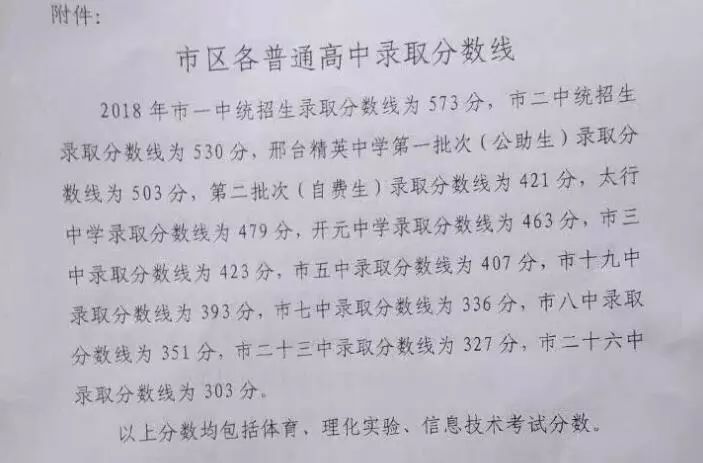 附件：
市区各普通高中录取分数线
2018 年市一中统招生录取分数线为 573 分，市二中统招生
录取分数线为 530 分，邢台精英中学第一批次（公助生）录取分
数线为 503 分，第二批次（自费生）录取分数线为 421 分，太行
中学录取分数线为 479 分，开元中学录取分数线为 463 分，市三
中录取分数线为 423 分，市五中录取分数线为 407 分，市十九中
录取分数线为 393 分，市七中录取分数线为 336 分，市八中录取
分数线为 351 分，市二十三中录取分数线为 327 分，市二十六中
录取分数线为 303 分。
以上分数均包括体育、理化实验、信息技术考试分数。